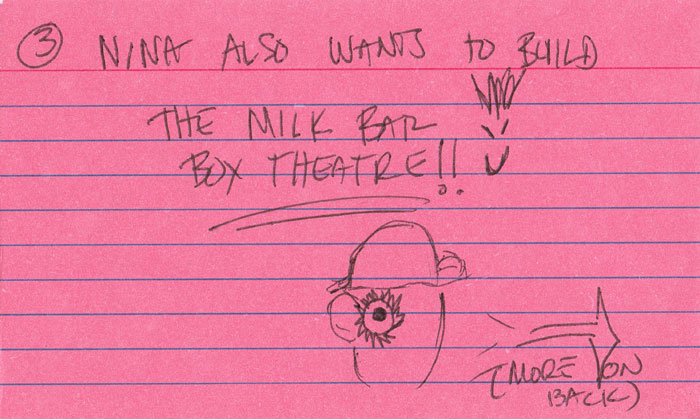 ③ NINA ALSO WANTS to BUILD
THE MILK BAR
BOX THEATRE!!
(MORE ON
BACK)